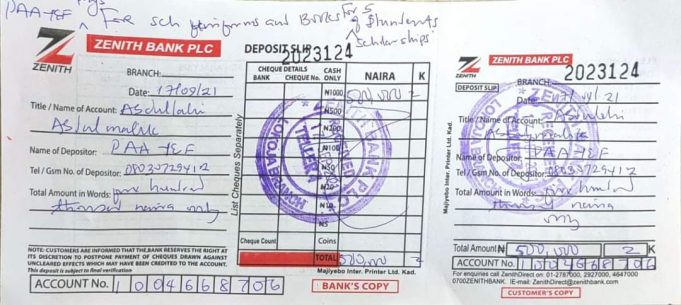 PAA-Y&F
For sch uniforms and Books for 5
students
scholarships.
ZENITH
ZENITH BANK PLC
DEPOSIT SLIP
2023124
BRANCH:
Date: 17/09/21
Title / Name of Account: Abdullahi
Abdulmalik
Name of Depositor: PAA Y&F
Tel / Gsm No. of Depositor:
Total Amount in Words: five hundred
thousand naira only
NOTE: CUSTOMERS ARE INFORMED THAT THE BANK RESERVES THE RIGHT AT
ITS DISCRETION TO POSTPONE PAYMENT OF CHEQUES DRAWN AGAINST
UNCLEARED EFFECTS WHICH MAY HAVE BEEN CREDITED TO THE ACCOUNT.
This deposit is subject to final verification
ACCOUNT No. 1004668706
List Cheques Separately
CHEQUE DETAILS
BANK
CHEQUE No.
CASH
ONLY
NAIRA
K
N1000
500,000
N500
N200
N100
N50
N20
N10
N5
Coins
Cheque Count
TOTAL
500,000
Majiyebo Inter. Printer Ltd. Kad.
BANK'S COPY
ZENITH BANK PLC
TELLER
LOKOJA BRANCH
ZENITH
ZENITH BANK PLC
DEPOSIT SLIP
2023124
BRANCH
Date:
Title / Name of Account: Abdullahi
Abdulmalik
Name of Depositor: PAA Y&F
Tel / Gsm No. of Depositor:
Total Amount in Words: five hundred
thousand naira
only
Total Amount N 500,000 K
ACCOUNT No. 1004668706
For enquiries call ZenithDirect on 01-2787000, 2927000, 4647000
0700ZENITHBANK. IE-mail: ZenithDirect@zenithbank.com
CUSTOMER'S COPY
Majiyebo Inter. Printer Ltd. Kad.